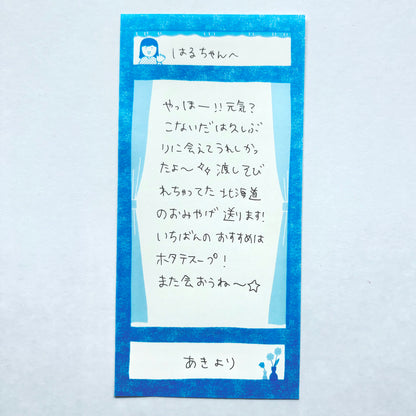 はるちゃんへ
やっほー!!元気?
こないだは久しぶ
りに会えてうれしかっ
たよ〜々々渡しそび
れちゃってた北海道
のおみやげ送ります!
いちばんのおすすめは
ホタテスープ!
また会おうね〜☆
あきより